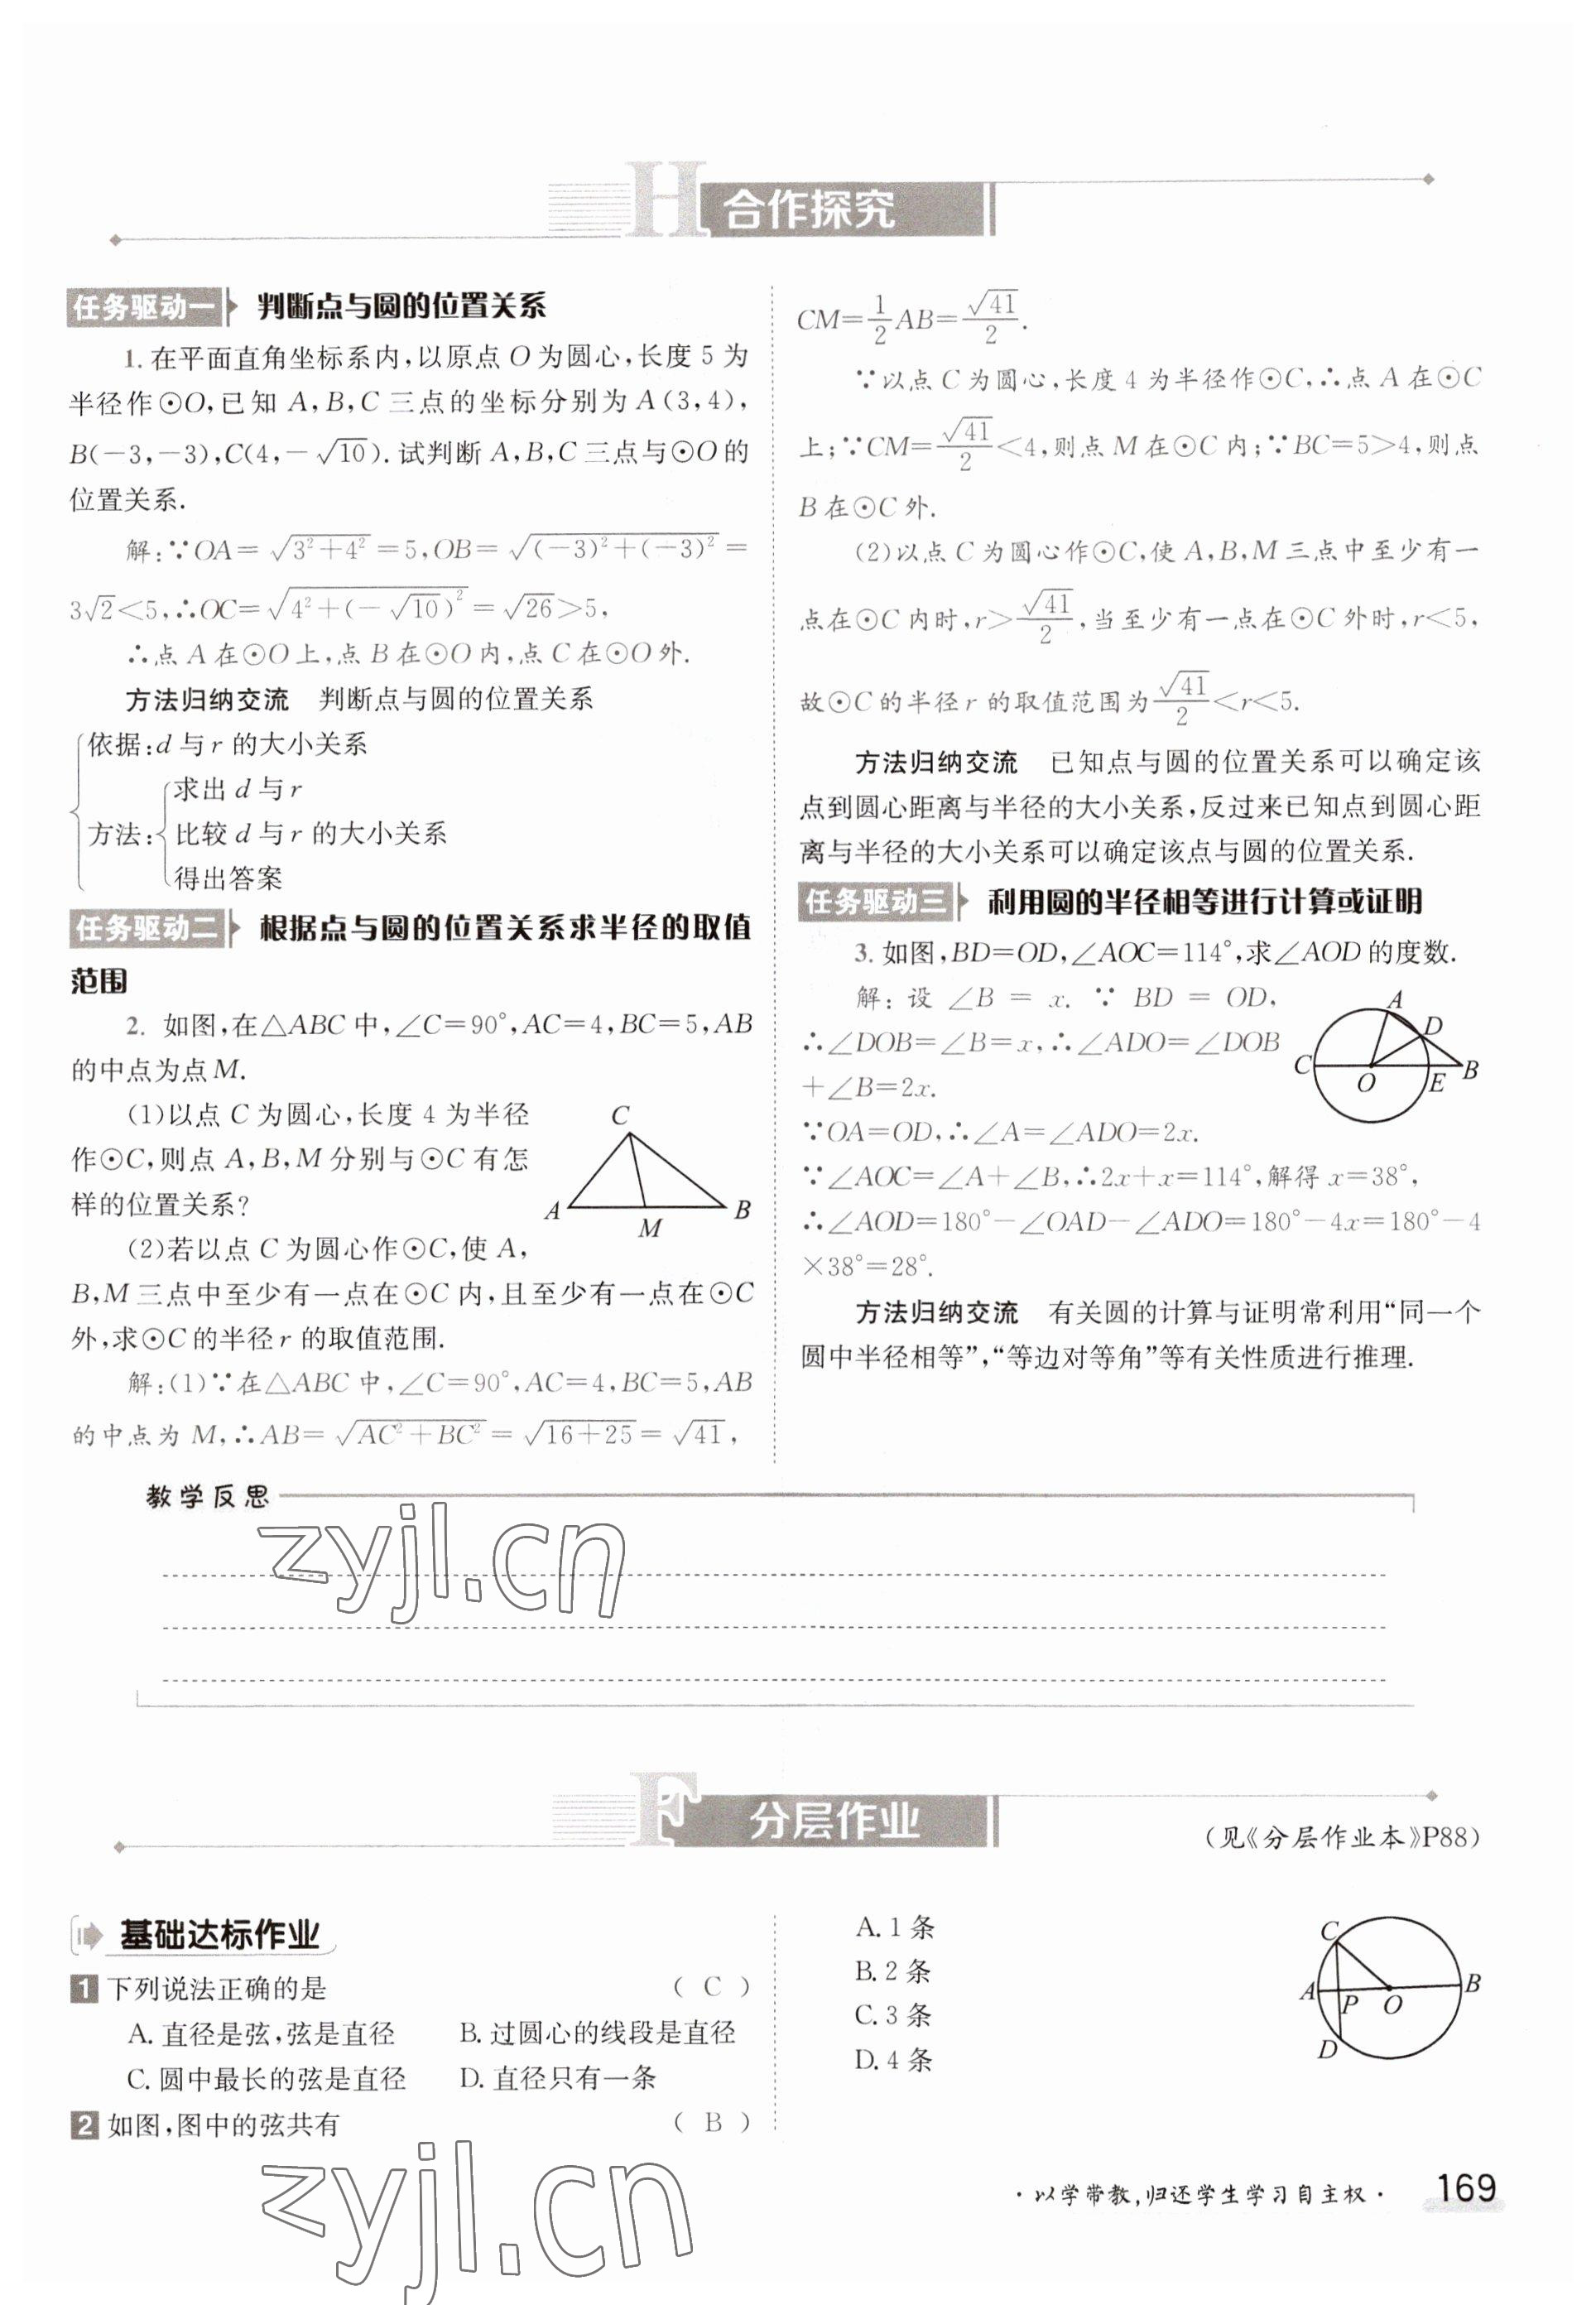 H 合作探究
任务驱动一 判断点与圆的位置关系
1. 在平面直角坐标系内,以原点 O 为圆心,长度 5 为
半径作⊙O,已知 A,B,C 三点的坐标分别为 A(3,4),
B(-3,-3),C(4,-√10). 试判断 A,B,C 三点与⊙O 的
位置关系.
解:∵OA=√(3²+4²)=5,OB=√((-3)²+(-3)²)=
3√2<5,∴OC=√(4²+(-√10)²)=√26>5,
∴点 A 在⊙O 上,点 B 在⊙O 内,点 C 在⊙O 外.
方法归纳交流 判断点与圆的位置关系
依据:d 与 r 的大小关系
求出 d 与 r
方法: 比较 d 与 r 的大小关系
得出答案
任务驱动二 根据点与圆的位置关系求半径的取值
范围
2. 如图,在△ABC 中,∠C=90°,AC=4,BC=5,AB
的中点为点 M.
(1)以点 C 为圆心,长度 4 为半径
作⊙C,则点 A,B,M 分别与⊙C 有怎
样的位置关系?
C
A
M
B
(2)若以点 C 为圆心作⊙C,使 A,
B,M 三点中至少有一点在⊙C 内,且至少有一点在⊙C
外,求⊙C 的半径 r 的取值范围.
解:(1)∵在△ABC 中,∠C=90°,AC=4,BC=5,AB
的中点为 M,∴AB=√(AC²+BC²)=√(16+25)=√41,
CM=1/2 AB=√41/2.
∵以点 C 为圆心,长度 4 为半径作⊙C,∴点 A 在⊙C
上;∵CM=√41/2<4,则点 M 在⊙C 内;∵BC=5>4,则点
B 在⊙C 外.
(2)以点 C 为圆心作⊙C,使 A,B,M 三点中至少有一
点在⊙C 内时,r>√41/2,当至少有一点在⊙C 外时,r<5,
故⊙C 的半径 r 的取值范围为√41/2<r<5.
方法归纳交流 已知点与圆的位置关系可以确定该
点到圆心距离与半径的大小关系,反过来已知点到圆心距
离与半径的大小关系可以确定该点与圆的位置关系.
任务驱动三 利用圆的半径相等进行计算或证明
3. 如图,BD=OD,∠AOC=114°,求∠AOD 的度数.
解: 设 ∠B = x. ∵ BD = OD,
∴∠DOB=∠B=x,∴∠ADO=∠DOB
+∠B=2x.
A
D
C
O
E
B
∵OA=OD,∴∠A=∠ADO=2x.
∵∠AOC=∠A+∠B,∴2x+x=114°,解得 x=38°,
∴∠AOD=180°-∠OAD-∠ADO=180°-4x=180°-4
×38°=28°.
方法归纳交流 有关圆的计算与证明常利用“同一个
圆中半径相等”,“等边对等角”等有关性质进行推理.
教学反思
zyjl.cn
F 分层作业
(见《分层作业本》P88)
基础达标作业
1 下列说法正确的是 ( C )
A. 直径是弦,弦是直径 B. 过圆心的线段是直径
C. 圆中最长的弦是直径 D. 直径只有一条
2 如图,图中的弦共有 ( B )
A. 1 条
B. 2 条
C. 3 条
D. 4 条
C
A
P
O
B
D
zyjl.cn
·以学带教,归还学生学习自主权· 169